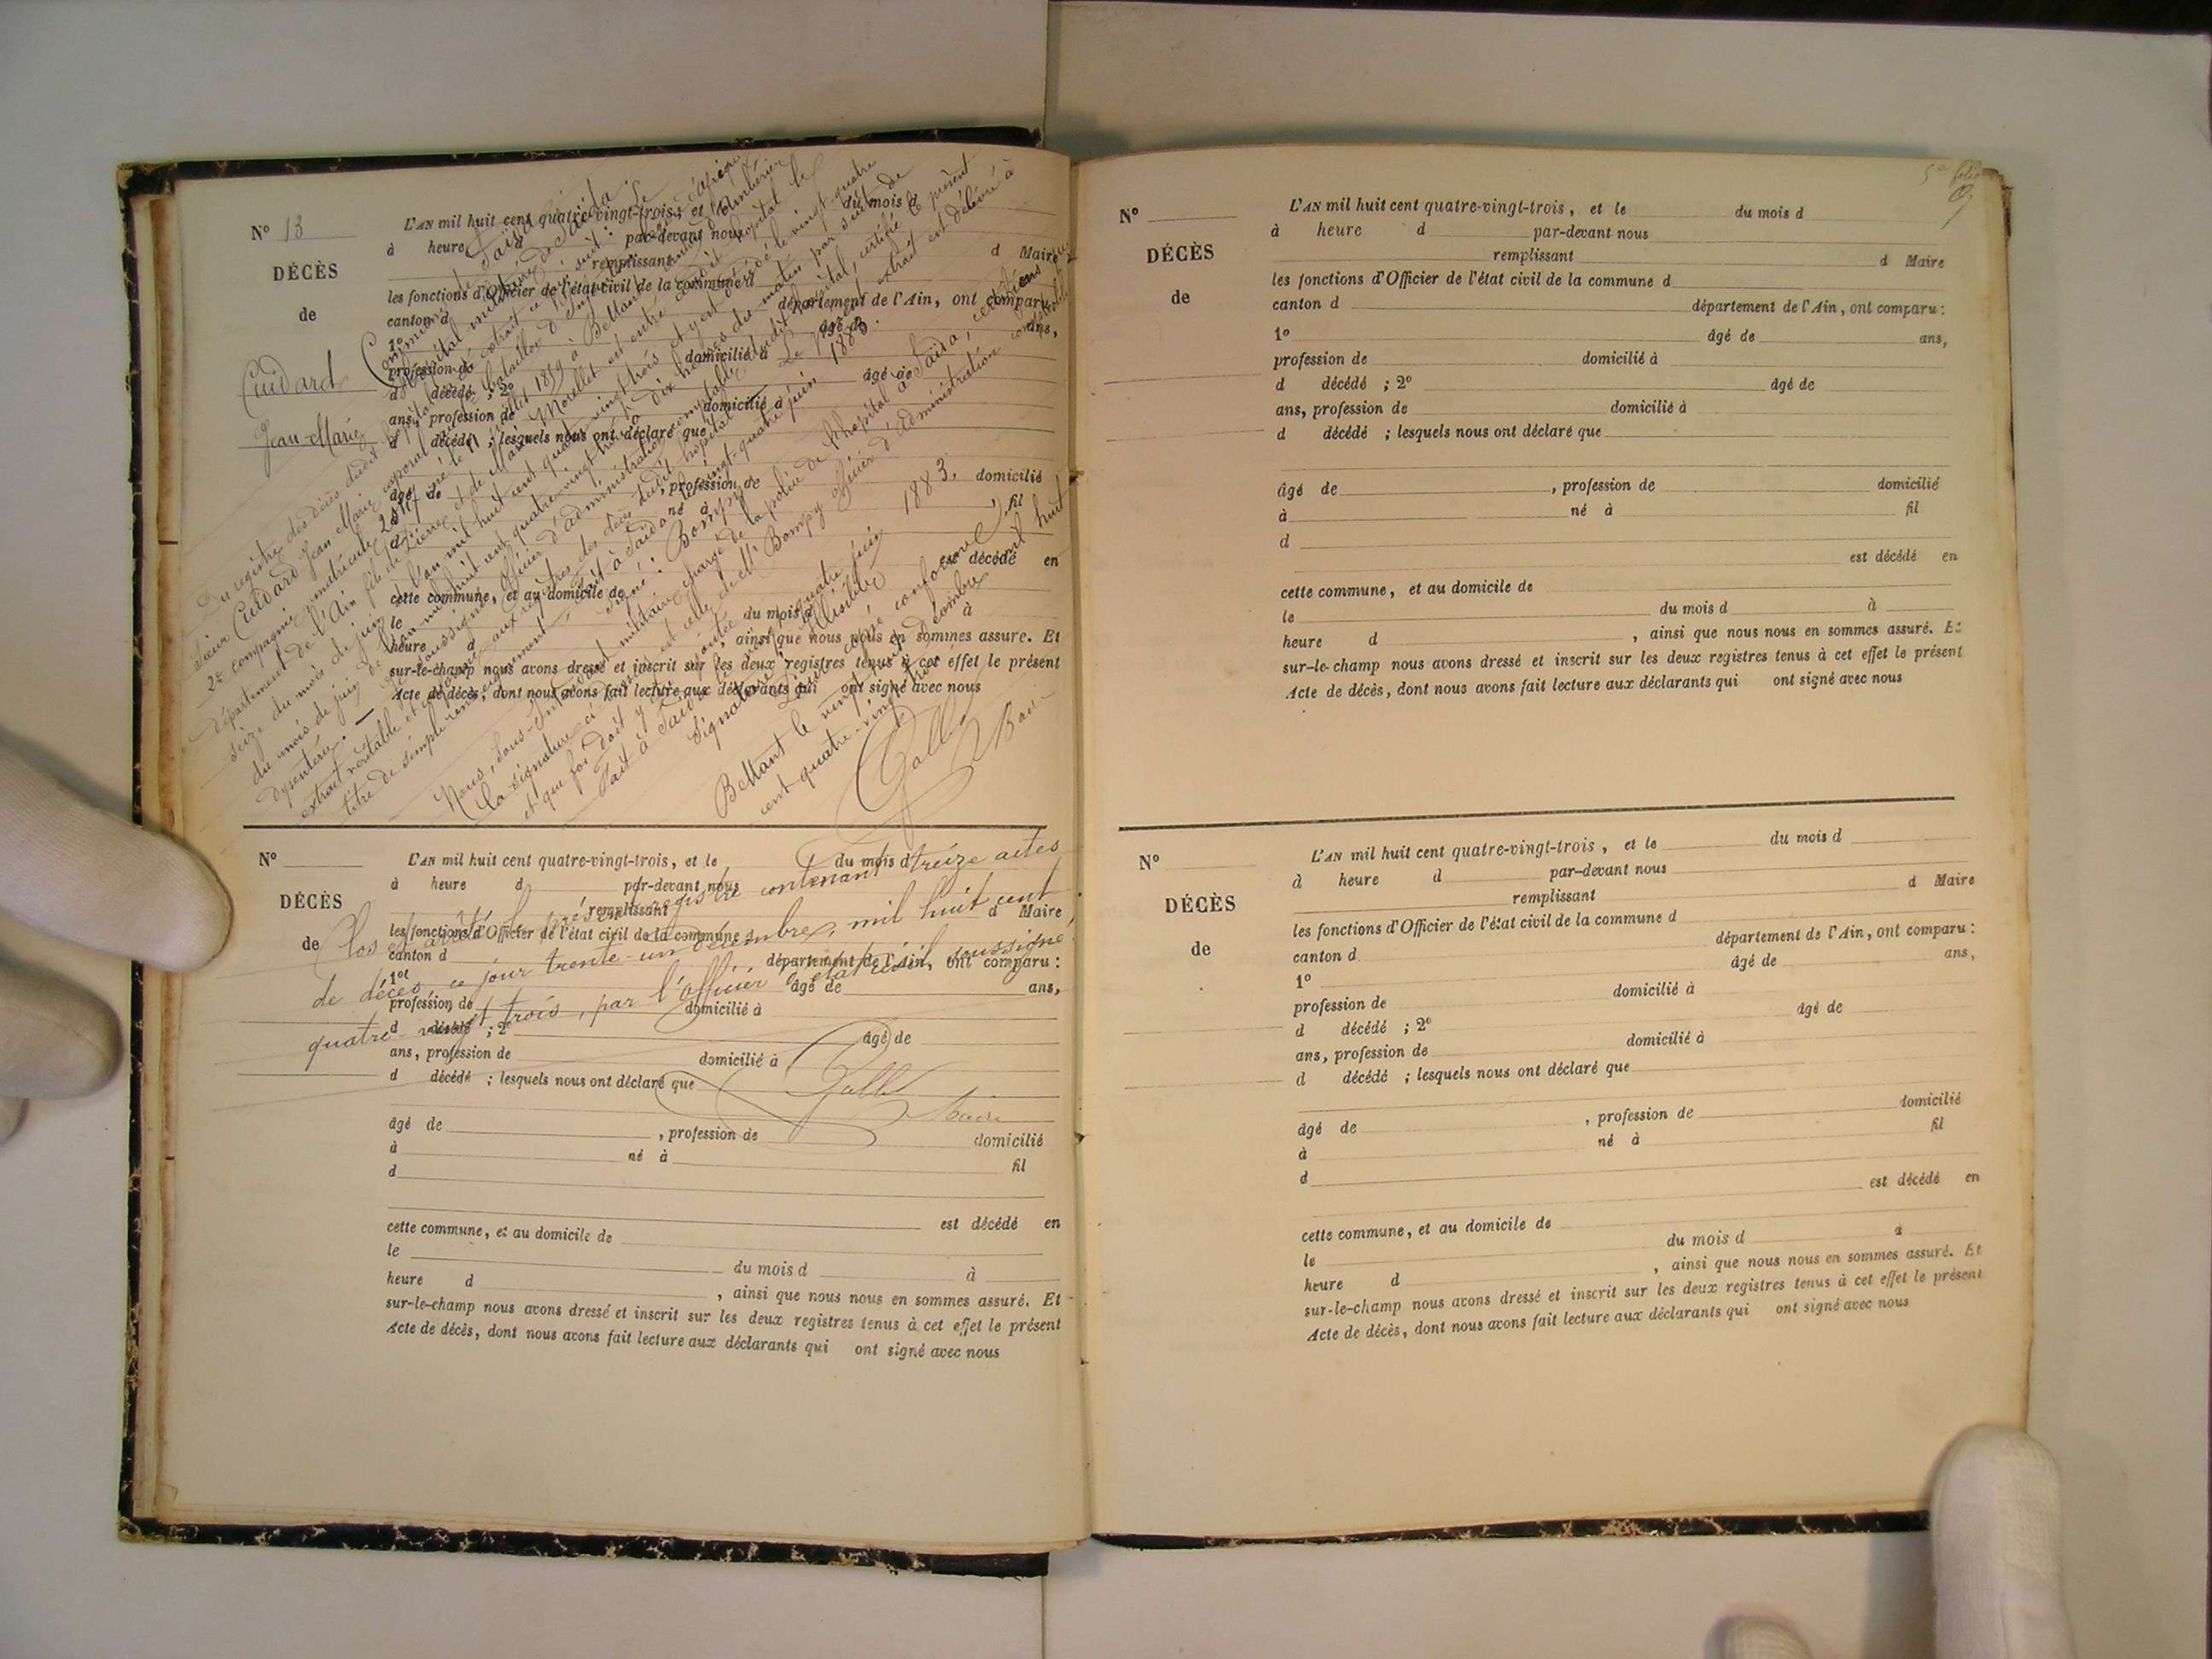 N° 13
DÉCÈS
de
Cuidard
Jean-Marie
L'AN mil huit cent quatre-vingt-trois, et le du mois d
à heure d par-devant nous
remplissant d Maire
les fonctions d'Officier de l'état civil de la commune d
canton d département de l'Ain, ont comparu
1° âgé de ans,
profession de domicilié à
d décédé ; 2° âgé de
ans, profession de domicilié à
d décédé ; lesquels nous ont déclaré que
âgé de , profession de domicilié
à né à fil
d
est décédé en
cette commune, et au domicile de
le du mois d à
heure d , ainsi que nous nous en sommes assuré. Et
sur-le-champ nous avons dressé et inscrit sur les deux registres tenus à cet effet le présent
Acte de décès, dont nous avons fait lecture aux déclarants qui ont signé avec nous
Commune de Saïda
hôpital militaire de Saïda
Du registre des décès dudit hôpital a été extrait ce qui suit : Le
Sieur Cuidard Jean Marie caporal au bataillon d'Infanterie d'afrique
2e compagnie matricule 2517 né le 11 juillet 1859 à Bettant canton d'Ambérieu
département de l'Ain fils de Pierre et de Marie Morellet est entré audit hôpital le
seize du mois de juin l'an mil huit cent quatre vingt trois et y est décédé le vingt quatre
du mois de juin de l'an mil huit cent quatre-vingt trois à dix heures du matin par suite de
dysenterie. — Je soussigné Officier d'administration comptable dudit hôpital, certifie le présent
extrait véritable et conforme aux registres des décès dudit hôpital. Le présent extrait est délivré à
titre de simple renseignement. Fait à Saïda le vingt-quatre juin 1883.
Signé : Bompy
Nous, Sous-Intendant militaire chargé de la police de l'hôpital à Saïda, certifions que
la signature ci-dessus est celle de Mr Bompy Officier d'administration comptable
et que foi doit y être ajoutée
Fait à Saïda le vingt quatre juin 1883.
Signature : Illisible
Pour copie conforme
Bettant le vingt huit décembre mil huit
cent quatre-vingt trois
Galle
Maire
N°
DÉCÈS
de
L'AN mil huit cent quatre-vingt-trois, et le du mois d
à heure d par-devant nous
remplissant d Maire
les fonctions d'Officier de l'état civil de la commune d
canton d département de l'Ain, ont comparu :
1° âgé de ans,
profession de domicilié à
d décédé ; 2° âgé de
ans, profession de domicilié à
d décédé ; lesquels nous ont déclaré que
âgé de , profession de domicilié
à né à fil
d
est décédé en
cette commune, et au domicile de
le du mois d à
heure d , ainsi que nous nous en sommes assuré. Et
sur-le-champ nous avons dressé et inscrit sur les deux registres tenus à cet effet le présent
Acte de décès, dont nous avons fait lecture aux déclarants qui ont signé avec nous
Clos et arrêté le présent registre contenant treize actes
de décès, ce jour trente-un décembre, mil huit cent
quatre vingt trois, par l'officier de l'état civil soussigné
Galle
Maire
5e folio
N°
DÉCÈS
de
L'AN mil huit cent quatre-vingt-trois, et le du mois d
à heure d par-devant nous
remplissant d Maire
les fonctions d'Officier de l'état civil de la commune d
canton d département de l'Ain, ont comparu :
1° âgé de ans,
profession de domicilié à
d décédé ; 2° âgé de
ans, profession de domicilié à
d décédé ; lesquels nous ont déclaré que
âgé de , profession de domicilié
à né à fil
d
est décédé en
cette commune, et au domicile de
le du mois d à
heure d , ainsi que nous nous en sommes assuré. Et
sur-le-champ nous avons dressé et inscrit sur les deux registres tenus à cet effet le présent
Acte de décès, dont nous avons fait lecture aux déclarants qui ont signé avec nous
N°
DÉCÈS
de
L'AN mil huit cent quatre-vingt-trois, et le du mois d
à heure d par-devant nous
remplissant d Maire
les fonctions d'Officier de l'état civil de la commune d
canton d département de l'Ain, ont comparu :
1° âgé de ans,
profession de domicilié à
d décédé ; 2° âgé de
ans, profession de domicilié à
d décédé ; lesquels nous ont déclaré que
âgé de , profession de domicilié
à né à fil
d
est décédé en
cette commune, et au domicile de
le du mois d à
heure d , ainsi que nous nous en sommes assuré. Et
sur-le-champ nous avons dressé et inscrit sur les deux registres tenus à cet effet le présent
Acte de décès, dont nous avons fait lecture aux déclarants qui ont signé avec nous